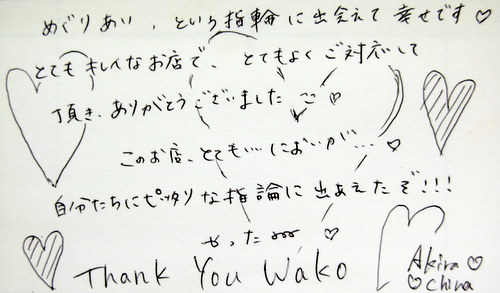 めぐりあい、という指輪に出会えて幸せです♡
とてもきれいなお店で、とてもよくご対応して
頂き、ありがとうございました ♡
このお店、とても…においが…♡
自分たちにピッタリな指論に出あえたぞ!!!
やった ♡
Thank You Wako
Akira♡
♡China